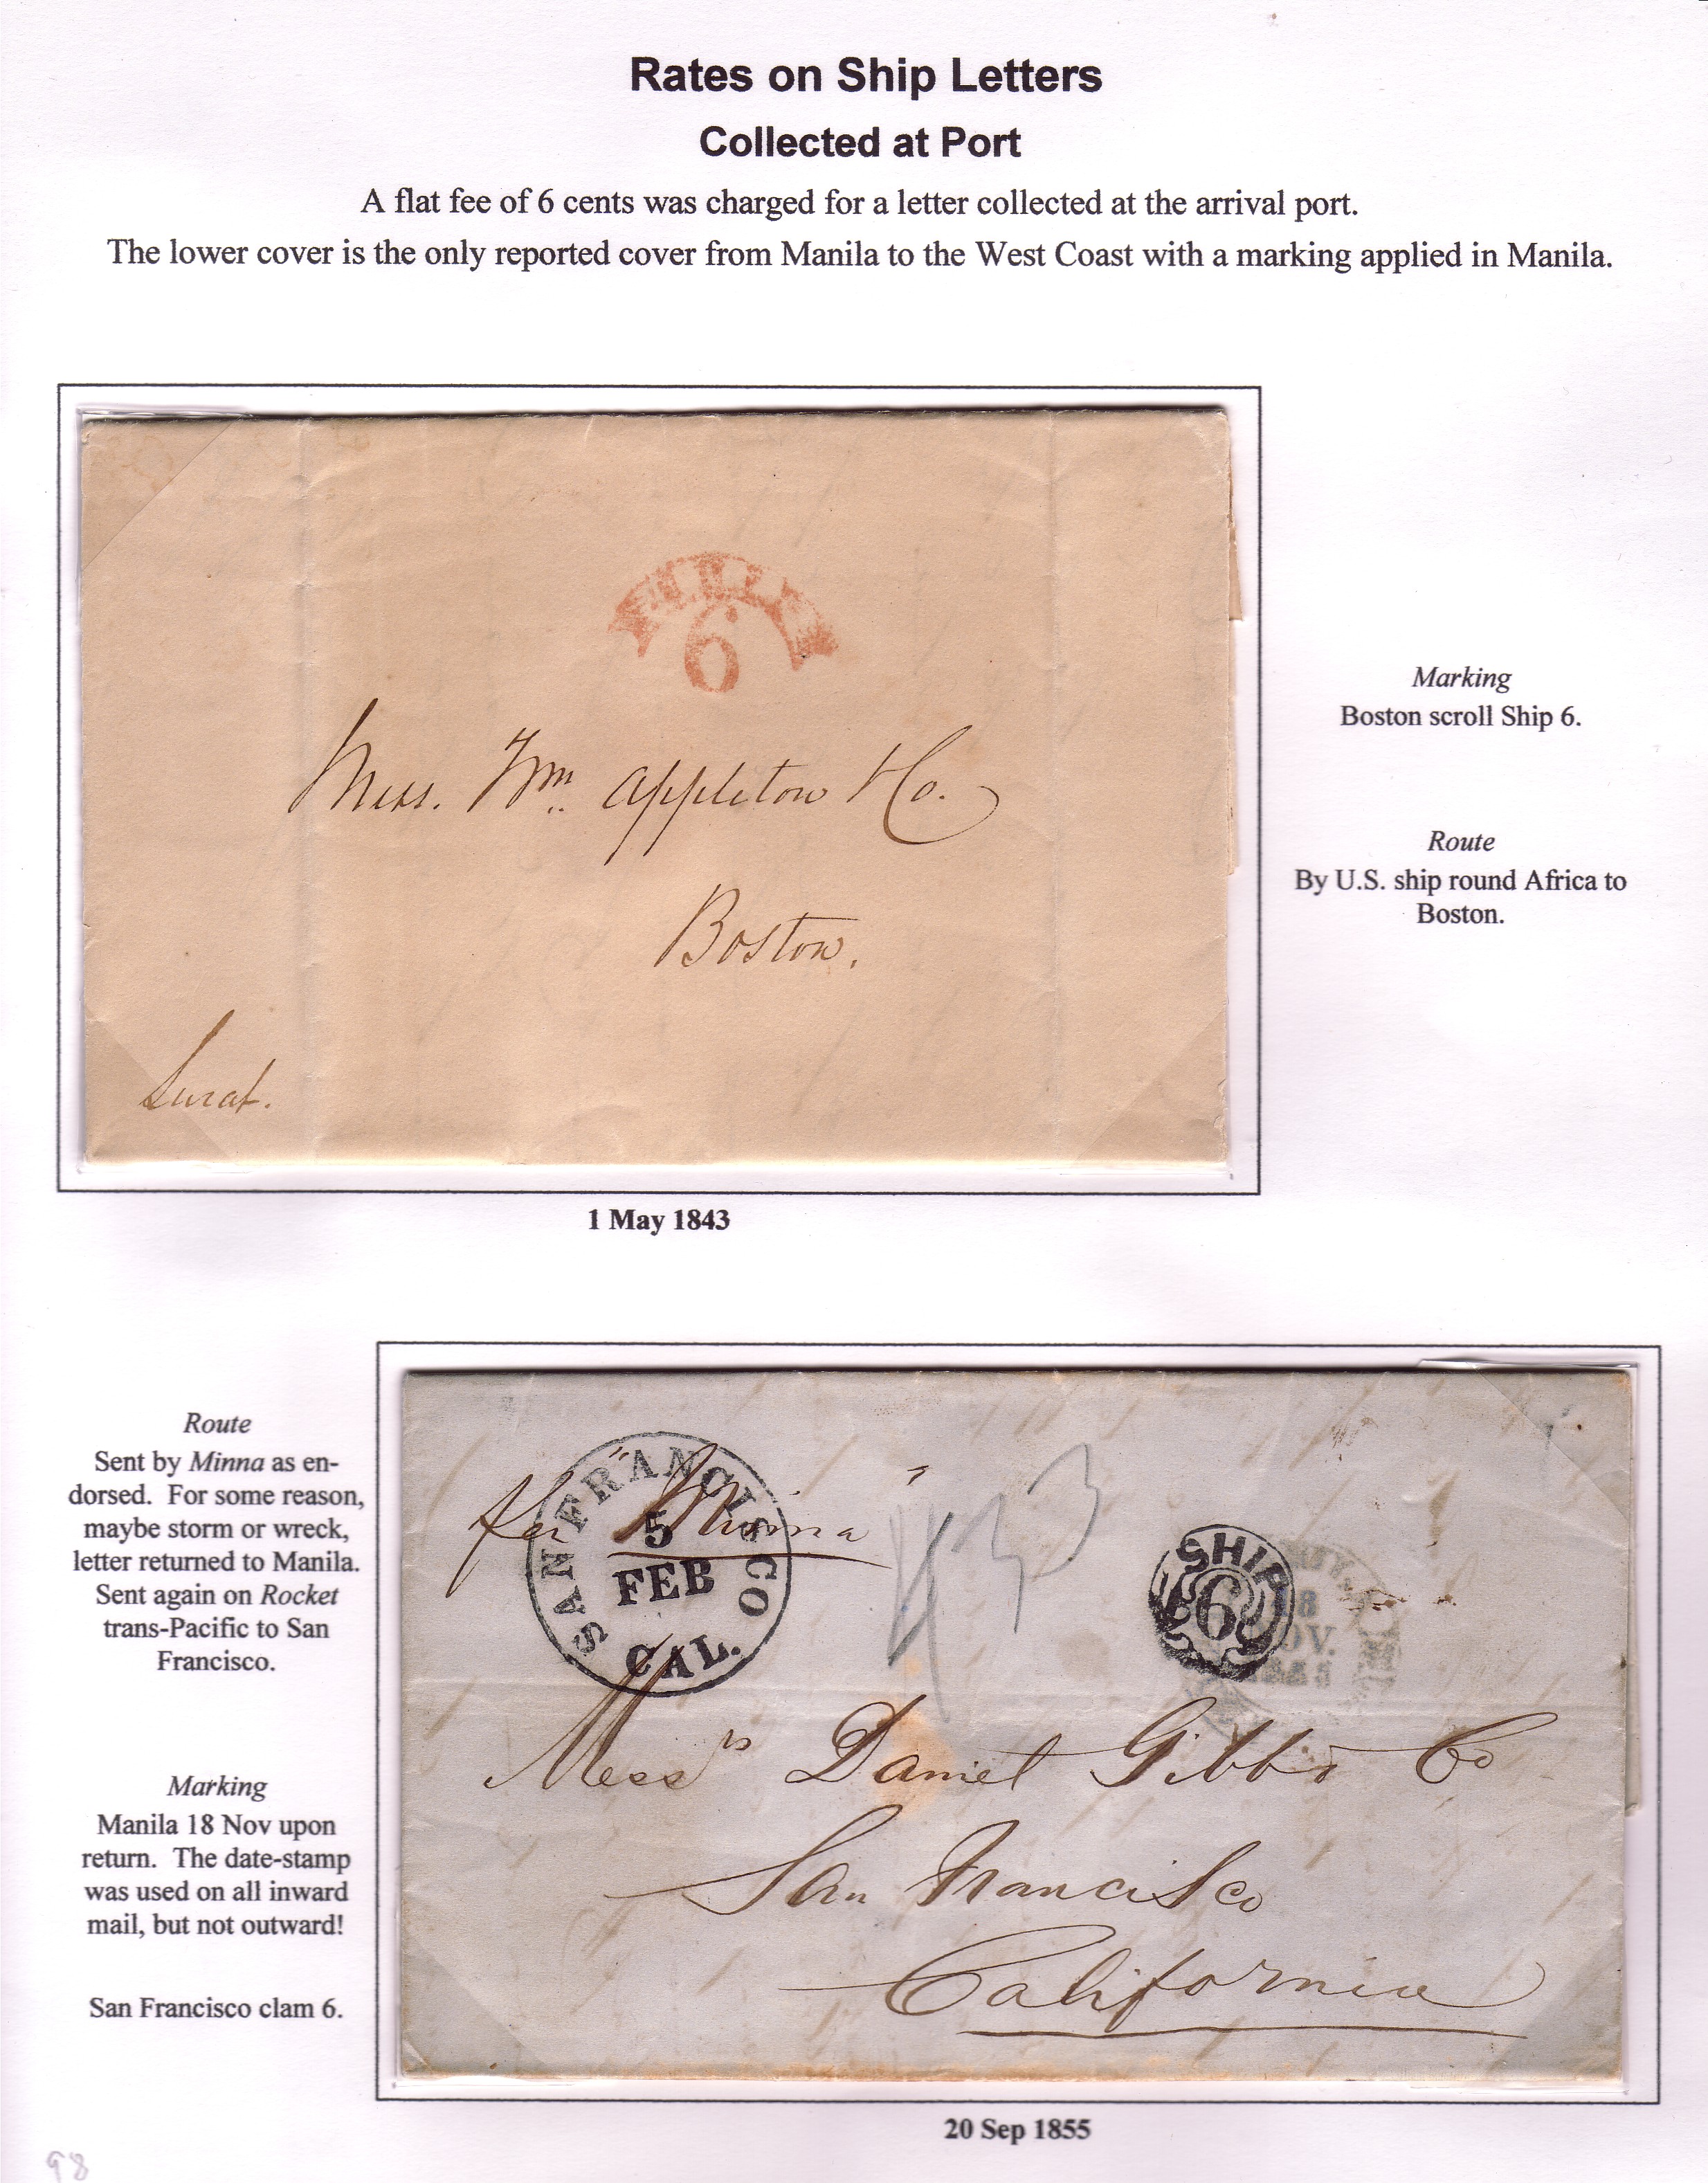 Rates on Ship Letters
Collected at Port
A flat fee of 6 cents was charged for a letter collected at the arrival port.
The lower cover is the only reported cover from Manila to the West Coast with a marking applied in Manila.
6
Mess. Wm. Appleton & Co.
Boston.
Surat.
Marking
Boston scroll Ship 6.
Route
By U.S. ship round Africa to
Boston.
1 May 1843
Route
Sent by Minna as en-
dorsed. For some reason,
maybe storm or wreck,
letter returned to Manila.
Sent again on Rocket
trans-Pacific to San
Francisco.
Marking
Manila 18 Nov upon
return. The date-stamp
was used on all inward
mail, but not outward!
San Francisco clam 6.
per "Minna"
SAN FRANCISCO
5
FEB
CAL.
SHIP
6
8
OV.
Messrs Daniel Gibbs Co
San Francisco
California
20 Sep 1855
98